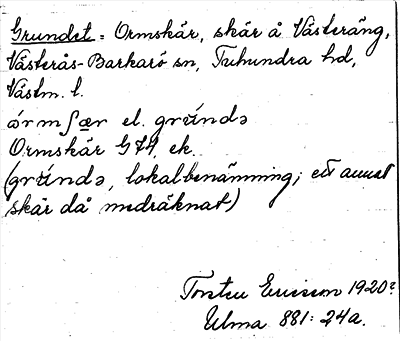 Grundet = Ormskär, skär å Västeräng,
Västerås-Barkarö sn, Tuhundra hd,
Västm. l.
órmʃær el. grúndə
Ormskär G74, ek.
(grúndə, lokalbenämning; ett annat
skär då medräknat)
Torsten Ericsson 1920?
Ulma 881: 24a.